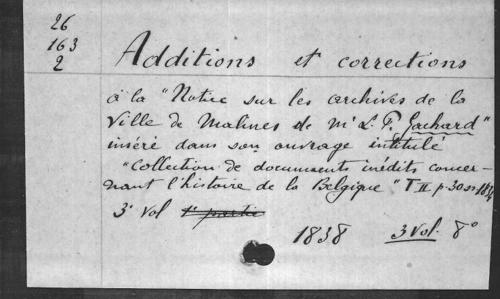 26
163
2
Additions et corrections
à la "Notice sur les archives de la
Ville de Malines de Mr L. P. Gachard"
inséré dans son ouvrage intitulé
"Collection de documents inédits concer-
nant l'histoire de la Belgique" T II p. 30
3e Vol 1e partie
1838 3 Vol. 8°